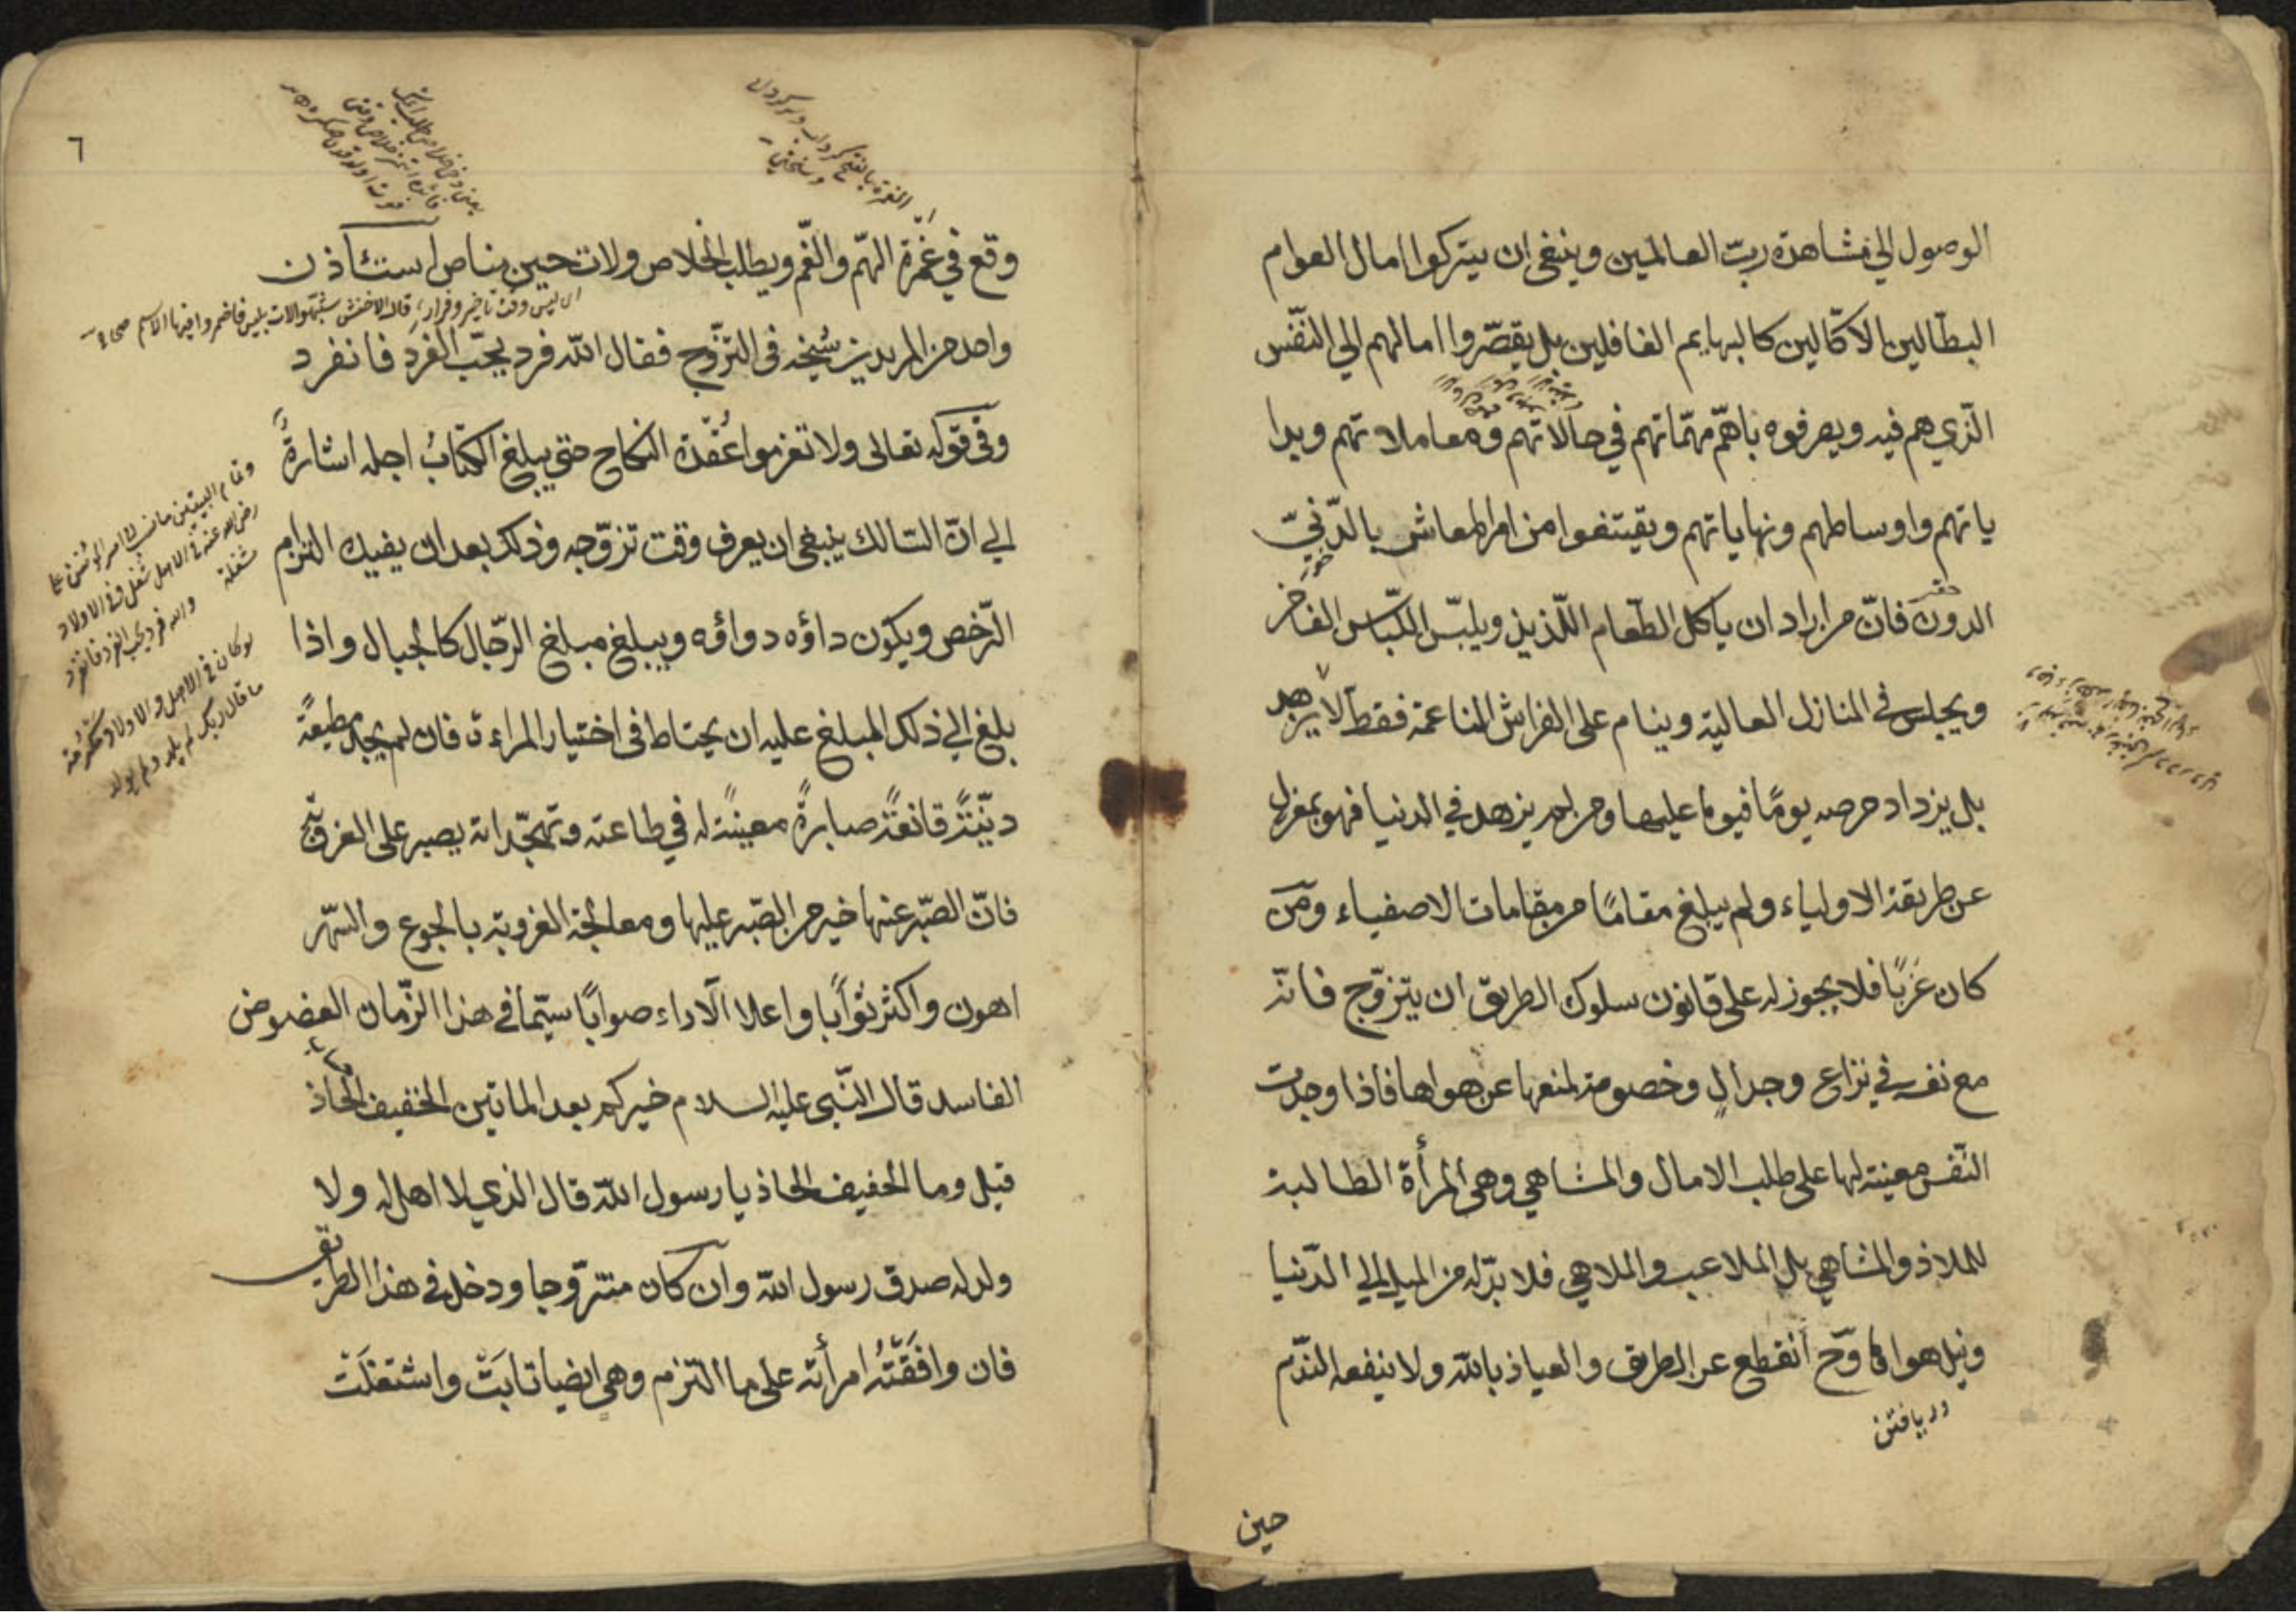 الوصول الي مشاهدة ربّ العالمين وينبغي ان يتركوا امال العوام
البطّالين الاكّالين كالبهايم الغافلين بل يقصّروا امالهم الي النّفس
الّذي هم فيه ويصرفوه باهمّ مهمّاتهم في حالاتهم ومعاملاتهم وبدا
ياتهم واوساطهم ونهاياتهم ويقتنعوا من امر المعاش بالدّنيّ
الدون فانّ من اراد ان ياكل الطّعام اللّذيذ ويلبس اللّباس الفاخر
ويجلس في المنازل العالية وينام على الفراش الناعمة فقط لا يزهد
بل يزداد حرصه يومًا فيوما عليها ومن لم يزهد في الدنيا فهو بمعزل
عن طريقة الاولياء ولم يبلغ مقامًا من مقامات الاصفياء ومن
كان عَزَبًا فلا يجوز له على قانون سلوك الطريق ان يتزوّج فانّه
مع نفسه في نزاع وجدالٍ وخصومة لمنعها عن هواها فاذا وجدت
النّفس معينة لها على طلب الامال والمشاهي وهي المرأة الطالبة
للملاذ والمشاهي بل الملاعب والملاهي فلا بدّ له من الميل الي الدّنيا
ونيل هواها وح انقطع عن الطريق والعياذ بالله ولا ينفعه الندم
دريافتن
حين
٦
وقع في غَمْرة الهمّ والغّم ويطلب الخلاص ولات حين مناص استئاذن
اى ليس وقت تاخير وفرار قال الاخفش شبّهوا لات بليس فاضمروا فيها الاسم
واحد من المريدين شيخه في التزّوج فقال الله فرد يحبّ الفرد فانفرد
وفي قوله تعالى ولا تعزموا عُقْدة النكاح حتى يبلغ الكتابُ اجله اشارةٌ
الي انّ السّالك ينبغي ان يعرف وقت تزوّجه وذلك بعد ان يفيده التزام
الرّخص ويكون داؤه دواؤه ويبلغ مبلغ الرّجال كالجبال واذا
بلغ الي ذلك المبلغ عليه ان يحتاط في اختيار المراءة فان لم يجد مطيعةً
ديّنةً قانعةً صبارةً معينةً له في طاعته وتهجّداته يصبر على العزوبة
فانّ الصّبر عنها خير من الصّبر عليها ومعالجة العزوبة بالجوع والسّهر
اهون واكثر ثوابًا واعلا الآراء صوابًا سيّما في هذا الزّمان العضوض
الفاسد قال النّبى عليه السلام خيركم بعد المائتين الخفيف الحاذ
قيل وما الخفيف الحاذ يا رسول الله قال الذي لا اهل له ولا
ولد له صدق رسول الله وان كان متزّوجا ودخل في هذا الطريق
فان وافَقَتْهُ امرأته على ما التزم وهي ايضا تابَتْ واشتغلَتْ
وتمام البيتين
رضى الله عنه فى الاهل شغل وفى الاولاد
مشغلة
والله فرد يحب الفرد فانفرد
لو كان فى الاهل والاولاد مكرمة
ما قال ربك لم يلد ولم يولد